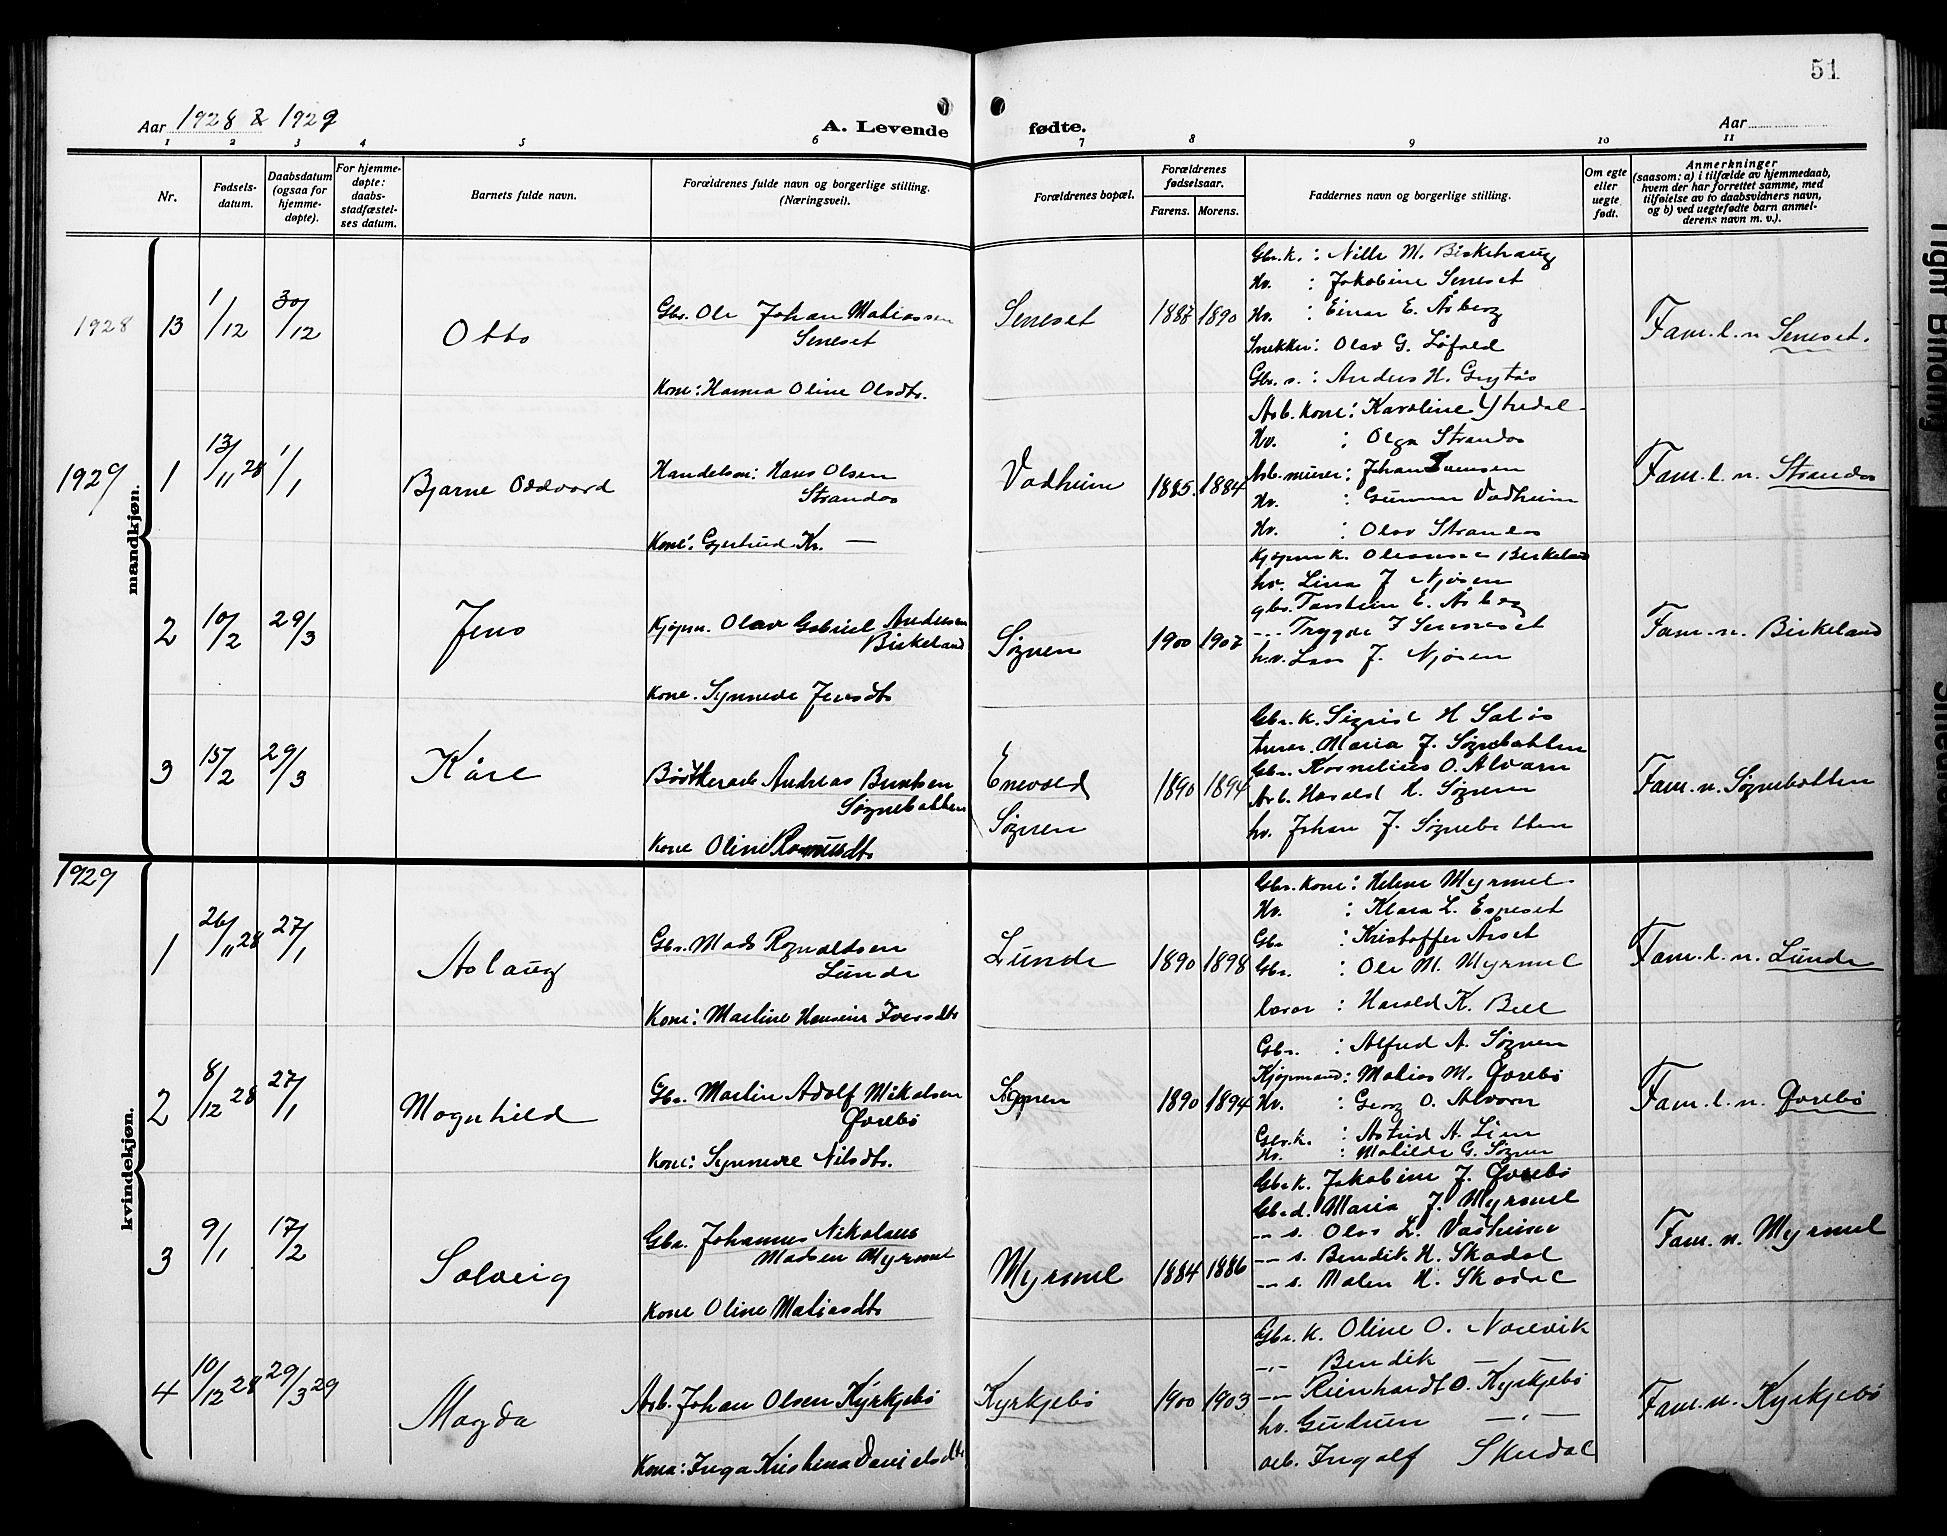 51
Aar 1928 & 1929
A. Levende fødte.
Aar
1 2 3 4 5 6 7 8 9 10 11
Nr.
Fødsels-
datum.
Daabsdatum
(ogsaa for
hjemme-
døpte).
For hjemme-
døpte:
daabs-
stadfæstel-
ses datum.
Barnets fulde navn.
Forældrenes fulde navn og borgerlige stilling.
(Næringsvei).
Forældrenes bopæl.
Forældrenes
fødselsaar.
Farens. Morens.
Faddernes navn og borgerlige stilling.
Om egte
eller
uegte
født.
Anmerkninger
(saasom: a) i tilfælde av hjemmedaab,
hvem der har forrettet samme, med
tilføielse av to daabsvidners navn,
og b) ved uegtefødte barn anmel-
derens navn m. v.).
mandkjøn.
1928 13 1/12 30/12
Otto
Gbr. Ole Johan Matiassen
Seneset
Kone: Hanna Oline Olsdtr.
Seneset
1887 1890
Gbr.k. : Nille M. Birkehaug
Hv. : Jakobine Seneset
Hv. : Einar E. Åsberg
Snekker: Olav G. Løfald
Gbr. s. : Anders H. Grytås
Fam. l. n Seneset.
1929 1 13/11 28 1/1
Bjarne Oddvard
Handelsm: Hans Olsen
Strandos
Kone: Gjertrud Kr. —
Vadheim
1885. 1884
Arb. kone: Karoline Ytredal
Hv. : Olga Strandos
Arb. murer: Johan Svensen
Hv. : Gunnar Vadheim
Hv. : Olav Strandos
Fam. l. n. Strandos
2 10/2 29/3
Jens
Kjøpm. Olav Gabriel Andersen
Birkeland
Kone. Synneve Jensdtr
Søgnen
1900 1907
Kjøpm k. Birkeland
hv. Lina J Njøsen
gbr. Torstein E. Åsberg
-"- Trygve J Senneset
h.v. Lars J. Njøsen
Fam. n. Birkeland
3 15/2 29/3
Kåre
Andreas Bentsen
Søgnebotten
Kone Oline Rasmusdtr
Enevold
Søgnen
1890 1894
Gbr. k. Sigrid H
Maria J. Søgnebotten
Gbr. Kornelius O. Alvorn
Arb. Harald H. Søgnen
hv. Johan J. Søgnebotten
Fam. n. Søgnebotten
kvindekjøn.
1929
1 26/11 28 27/1
Aslaug
Gbr. Mads Rognaldsen
Lunde
Kone: Martine Hansine Iversdtr
Lunde
1890 1898
Gbr. kone: Helene Myrmel
Hv. : Klara L. Espeset
Gbr : Kristoffer Åset
Gbr. : Ole M. Myrmel
lærer : Harald K. Bell
Fam. l. n. Lunde
2 8/12 28 27/1
Magnhild
Gbr. Martin Adolf Mikalsen
Øvrebø
Kone: Synneve Nilsdtr.
Søgnen
1890 1894
Gbr. : Alfred A. Søgnen
Kjøpmand: Matias M. Øvrebø
Hv. : Georg O. Alvorn
Gbr.k. : Astrid A. Lien
Hv. : Matilde G. Søgnen
Fam. l. n. Øvrebø
3 9/1 17/2
Solveig
Gbr. Johannes Nikolaus
Madsen Myrmel
Kone Oline Matiasdtr
Myrmel
1884 1886
Gbr.k. Jakobine J. Øvrebø
Gbr.d. Maria J. Myrmel
-"- s. Olav L. Vadheim
-"- s. Bendik H. Skadal
-"- s. Malen H. Skadal
Fam. n. Myrmel
4 10/12 28 29/3 29
Magda
Arb. Johan Olsen Kyrkjebø
Kona: Inga Kristina Danielsdtr
Kyrkjebø
1900 1903
Gbr. k. Oline O. Norevik
-"- Bendik — " —
-"- Reinhardt O. Kyrkjebø
hv. Gudrun — " —
arb. Ingolf Skudal
Fam. n. Kyrkjebø
Tight Binding